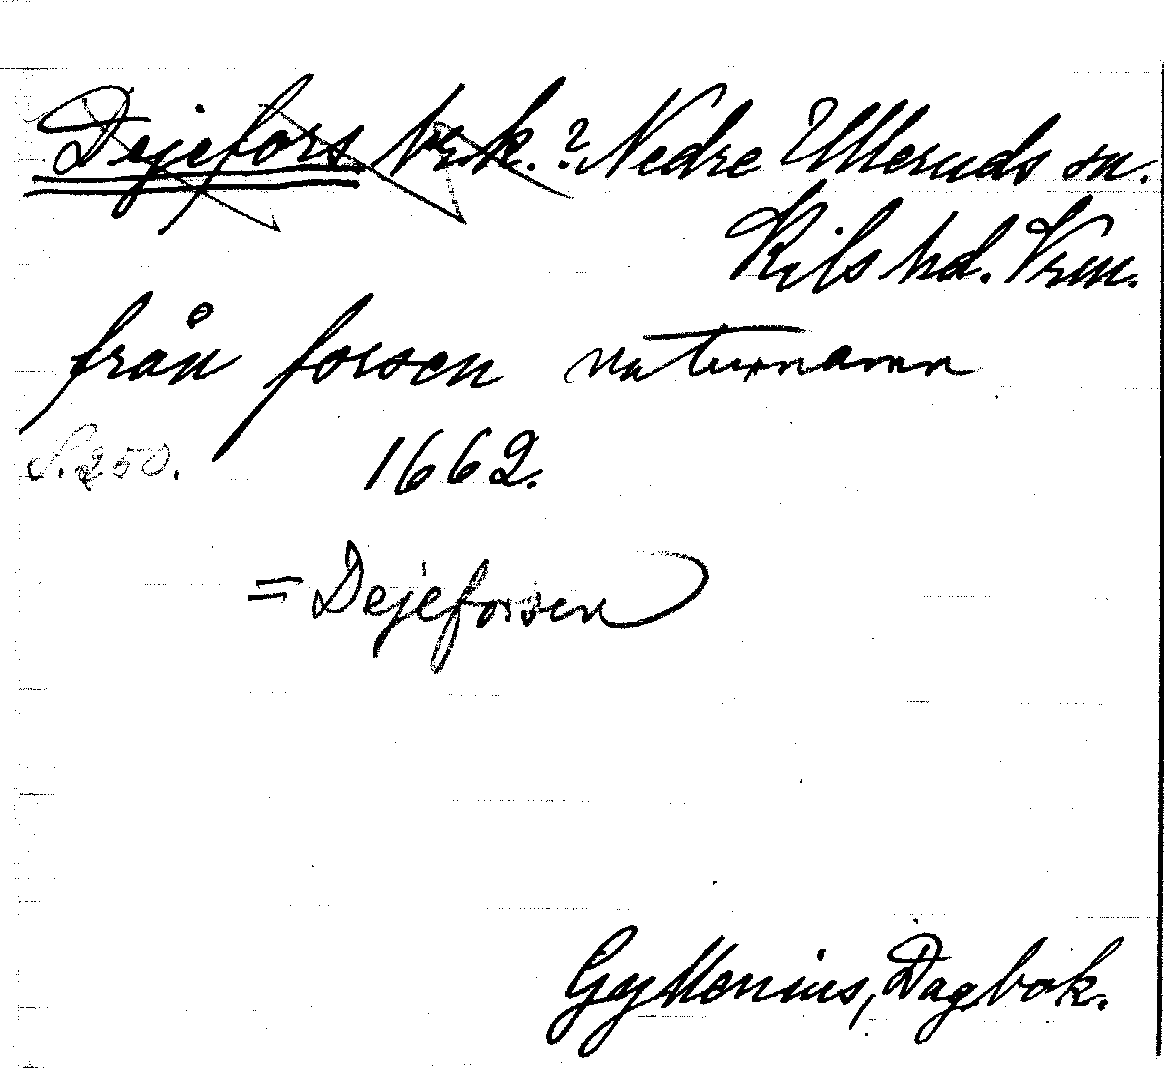 Dejefors brk.? Nedre Ulleruds sn.
Kils hd. Vrm.
från forsen naturnamn
S. 250. 1662.
= Dejeforsen
Gyllenius, Dagbok.